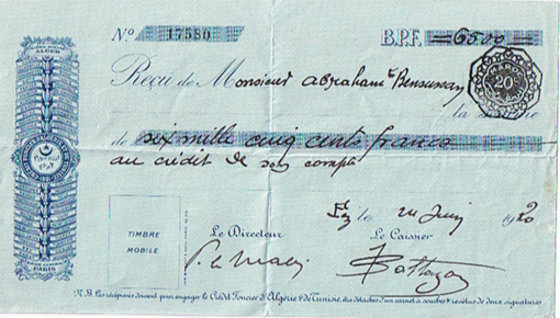 No 17580 B.P.F. 6500
Reçu de Monsieur Abraham Bensussan
20
la somme
de six mille cinq cents francs
au crédit de son compte
ALGER
Fez le 24 Juin 1920
TIMBRE
MOBILE
Le Directeur Le Caissier
PARIS
N.B. Les récépissés doivent pour engager le Crédit Foncier d'Algérie & de Tunisie, être détachés d'un carnet à souches & revêtus de deux signatures